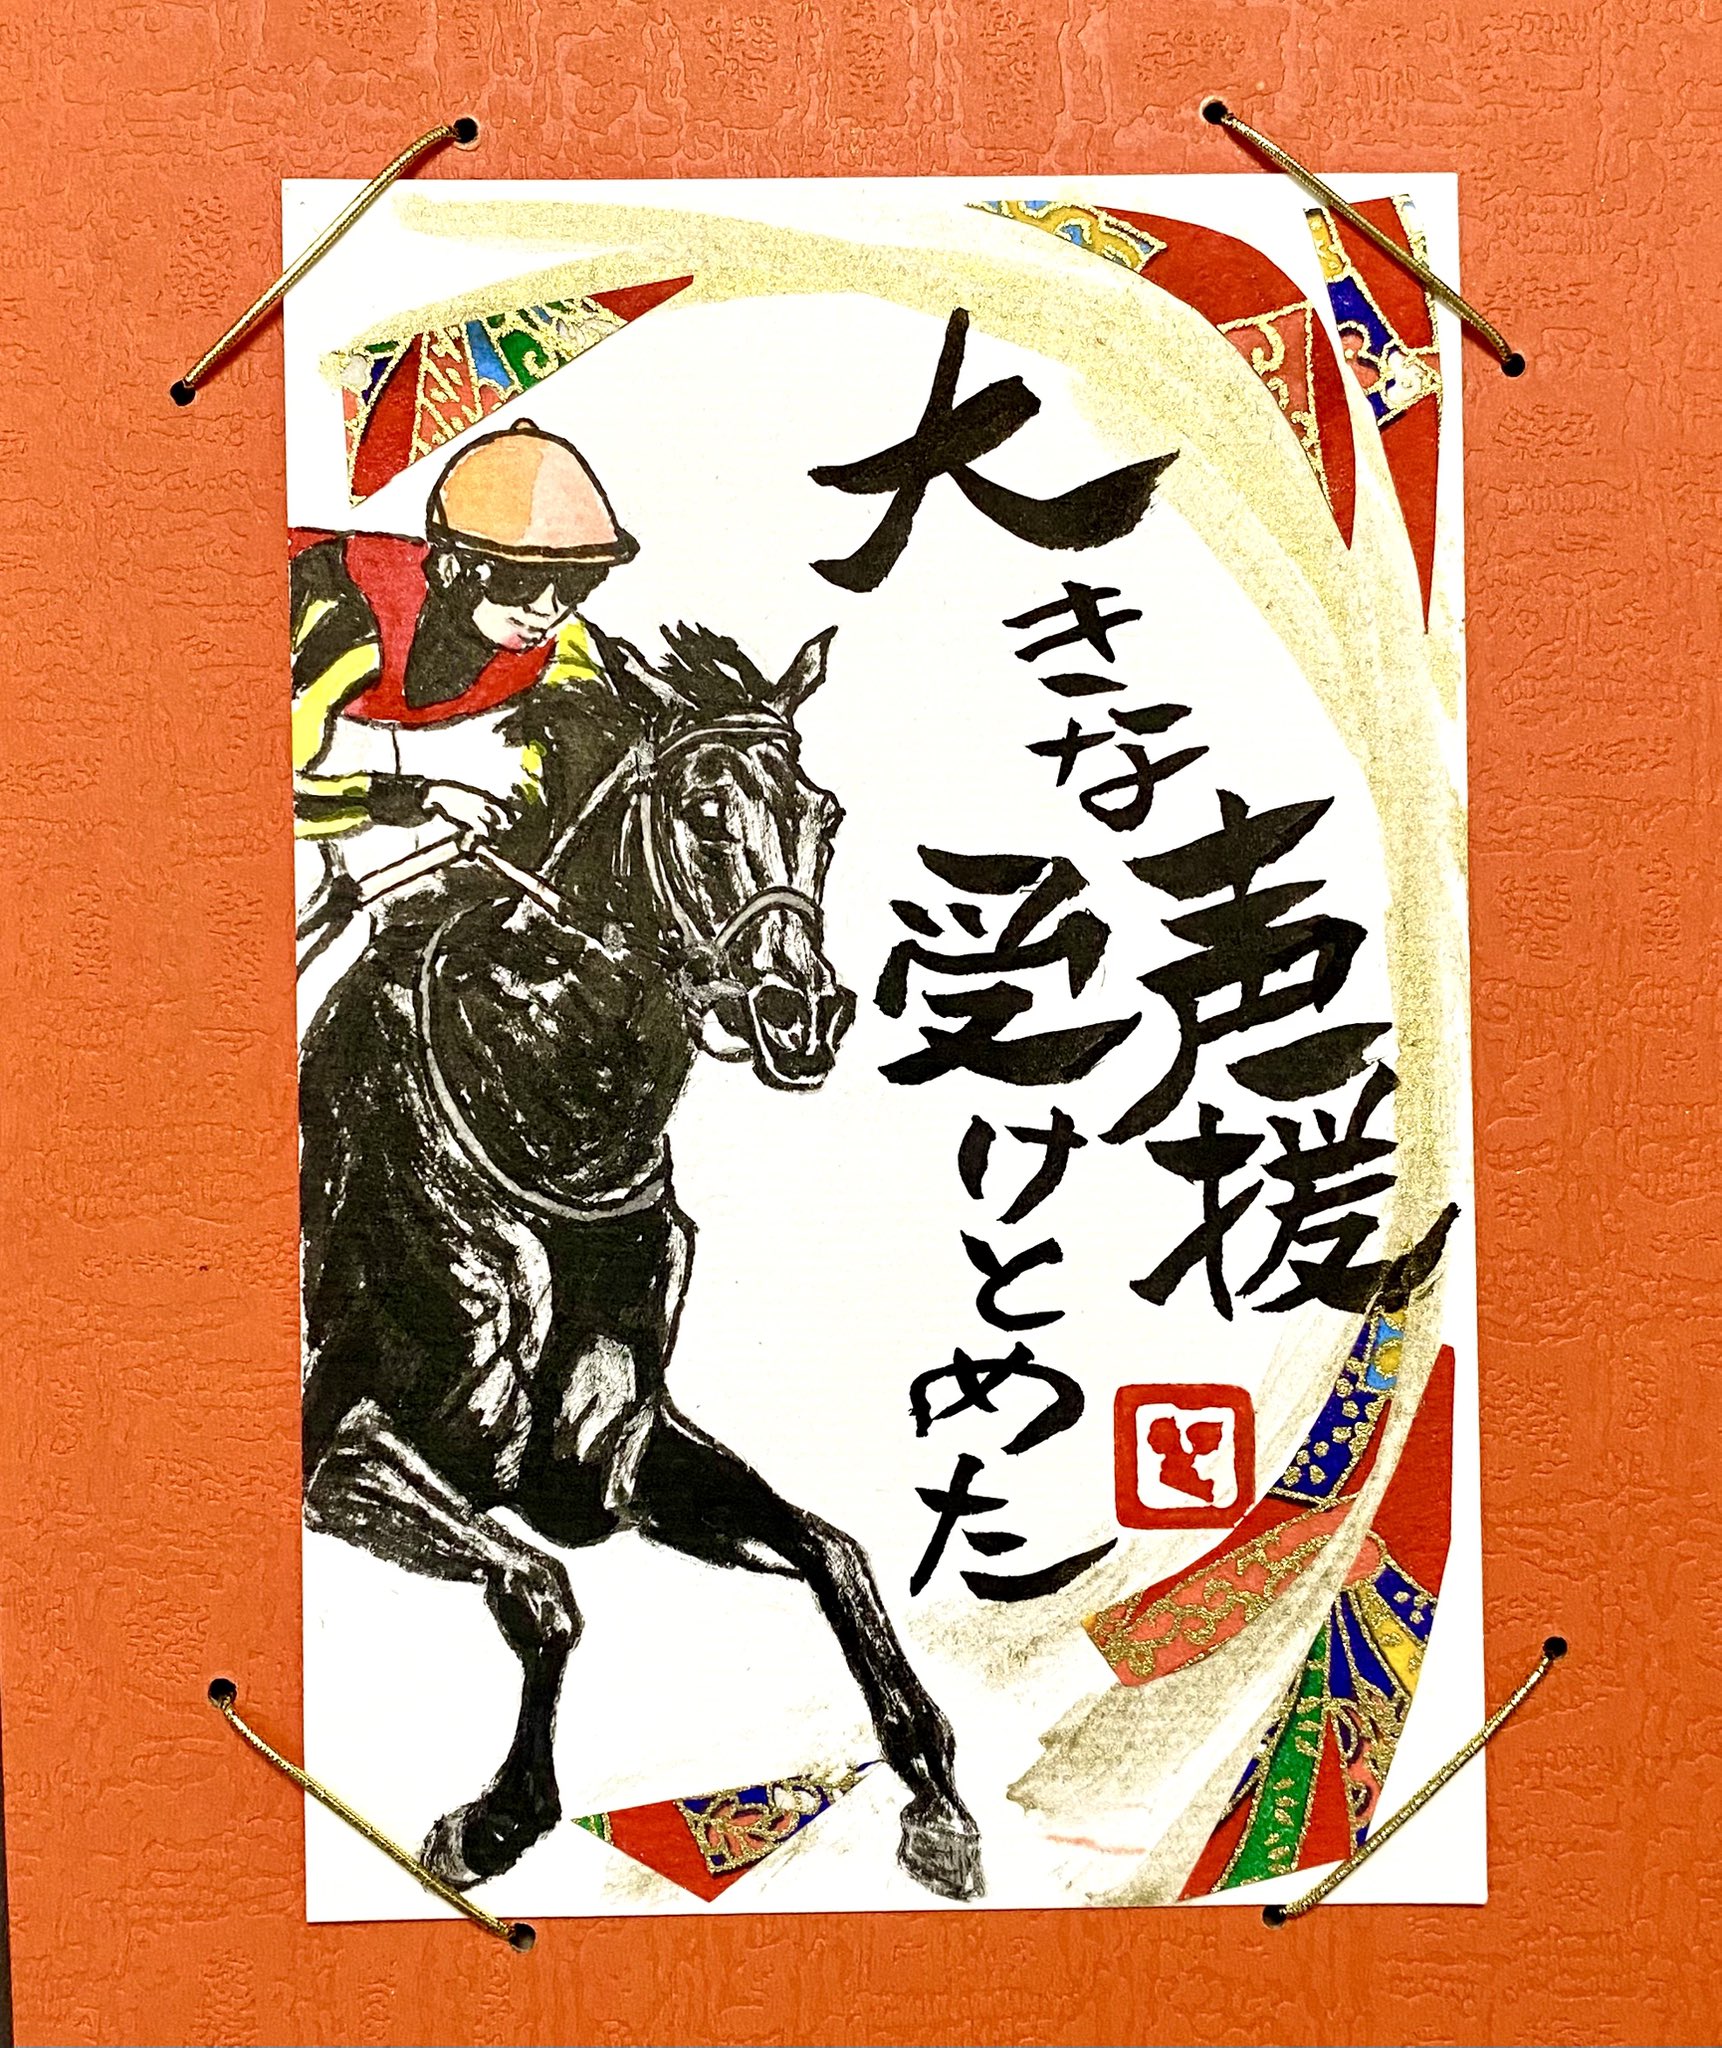 大きな声援
受けとめた